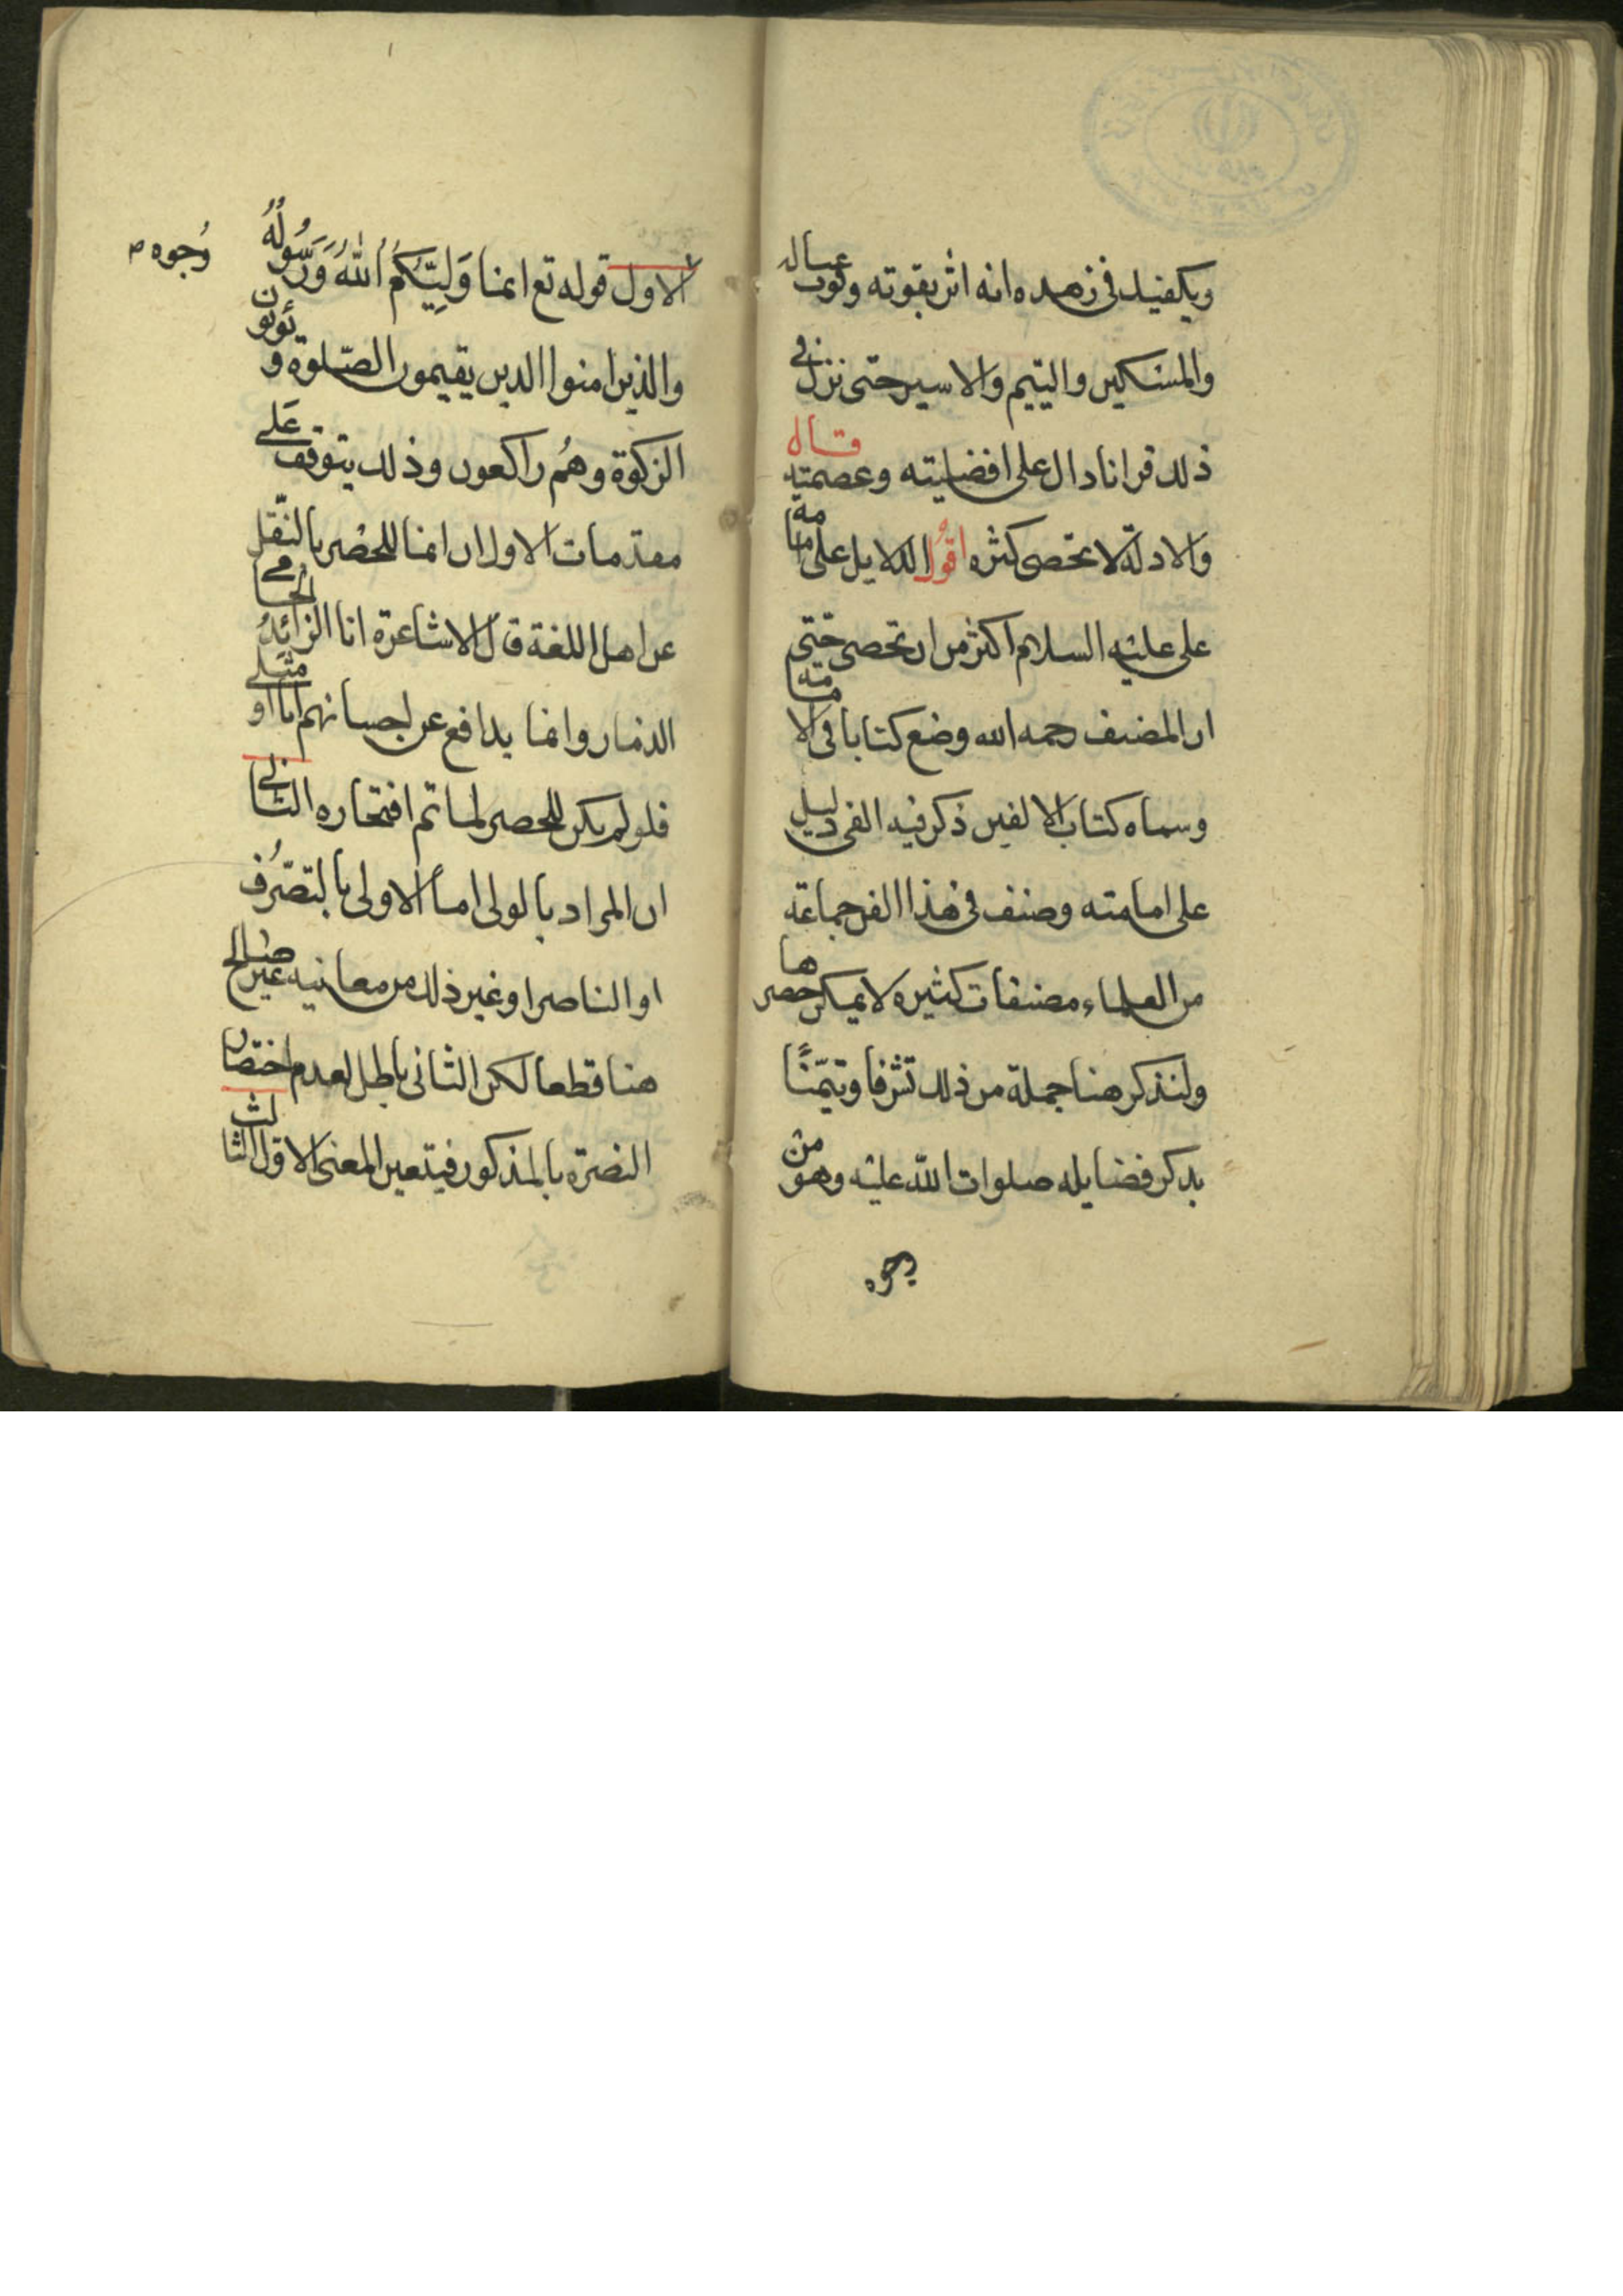 ويكفيك في زهده انه اثر بقوته وقوت عياله
والمسكين واليتيم والاسير حتى نزل في
ذلك قرانا دال على افضليته وعصمته قال
والادلة لا تحصى كثره اقول الدلايل على امامة
على عليه السلام اكثر من ان تحصى حتى
ان المصنف رحمه الله وضع كتابا في الامامة
وسماه كتاب الالفين ذكر فيه الفى دليل
على امامته وصنف في هذا الفن جماعة
من العلماء مصنفات كثيره لا يمكن حصرها
ولنذكر هنا جملة من ذلك تشرفا وتيمّنًا
بذكر فضايله صلوات الله عليه وهو من
وجوه
وُجوه
الاول قوله تع انما وَليّكُمُ اللهُ وَرَسُولُهُ
والذين امنوا الذين يقيمون الصّلوة و يؤتون
الزكوة وهُم راكعون وذلك يتوقف عَلى
مقدمات الاول ان انما للحصر بالنّقل
عن اهل اللغة قال الاشاعرة انا الزائِدُ الحامى
الذمار وانما يدافع عن احسابهم انا او مثلى
فلو لم يكن للحصر لما تم افتخاره الثانى
ان المراد بالولى اما الاولى بالتصّرُف
او الناصر او غير ذلك من معانيه غير صالح
هنا قطعا لكن الثانى باطل لعدم اختصاص
النصرة بالمذكور فيتعين المعنى الاول الثالث